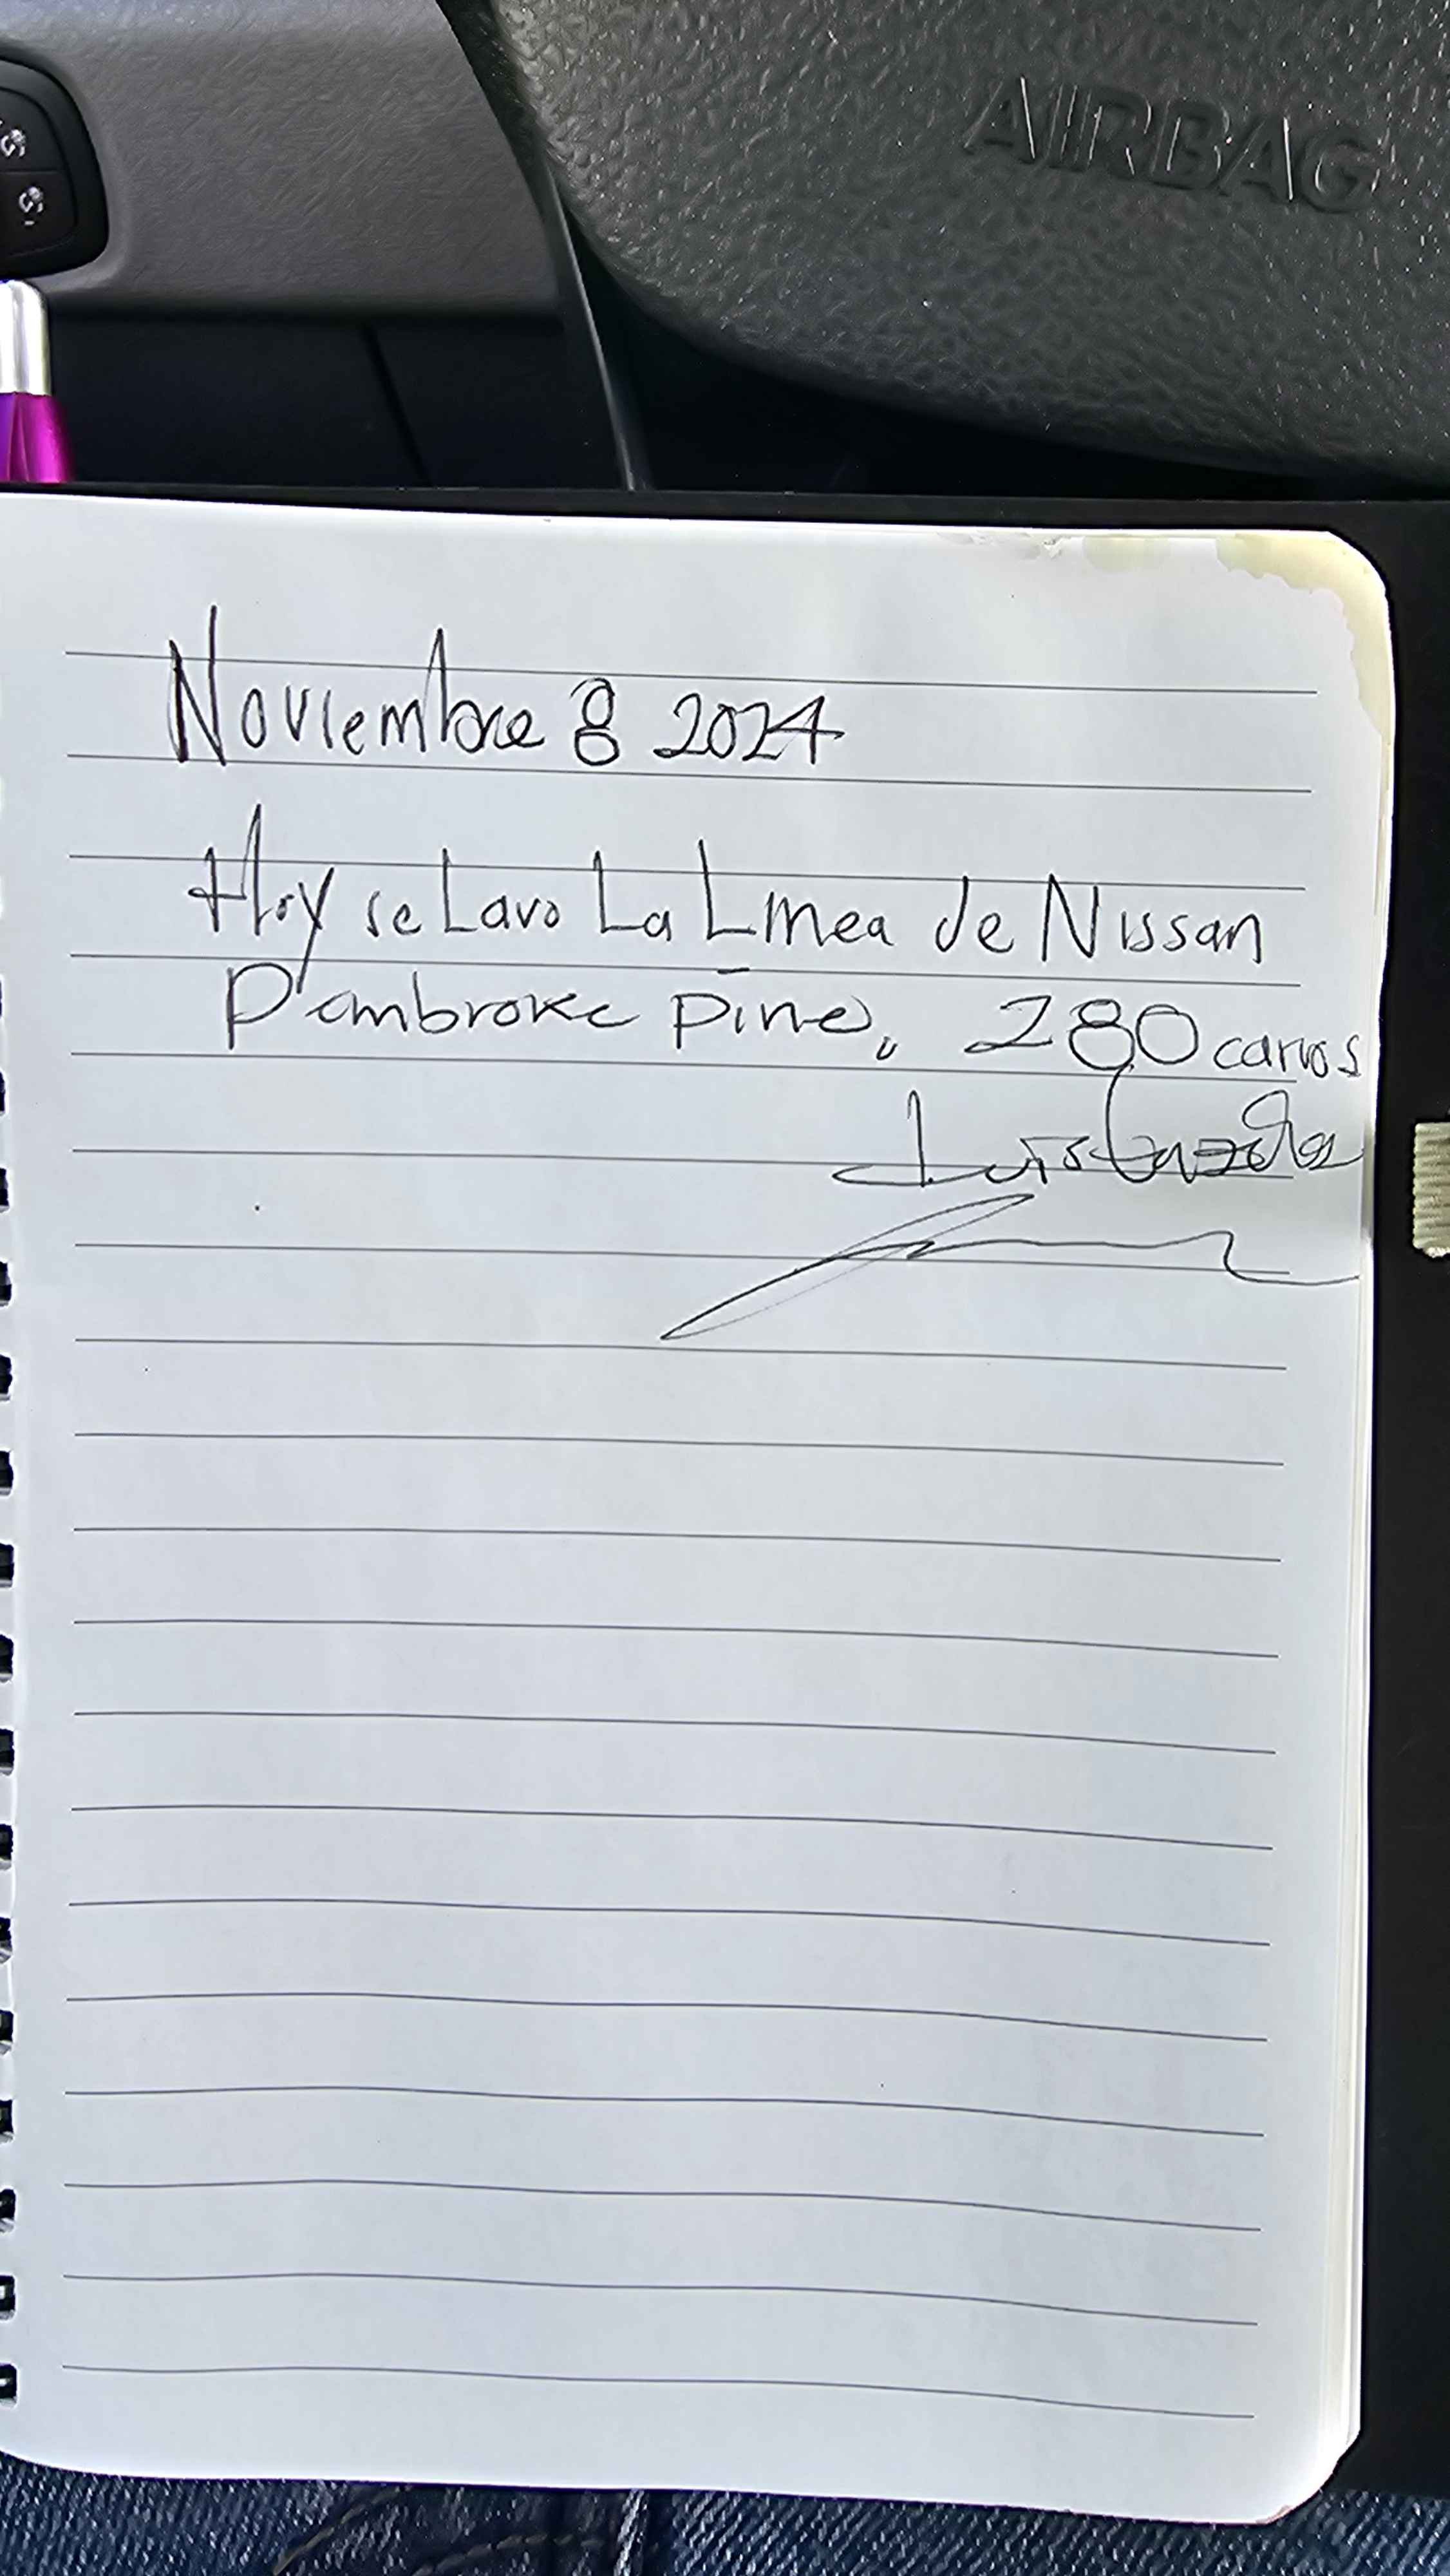 AIRBAG
Noviembre 8 2024
Hoy se Lavo La Linea de Nissan
Pembroke Pine, 280 carros
Luis